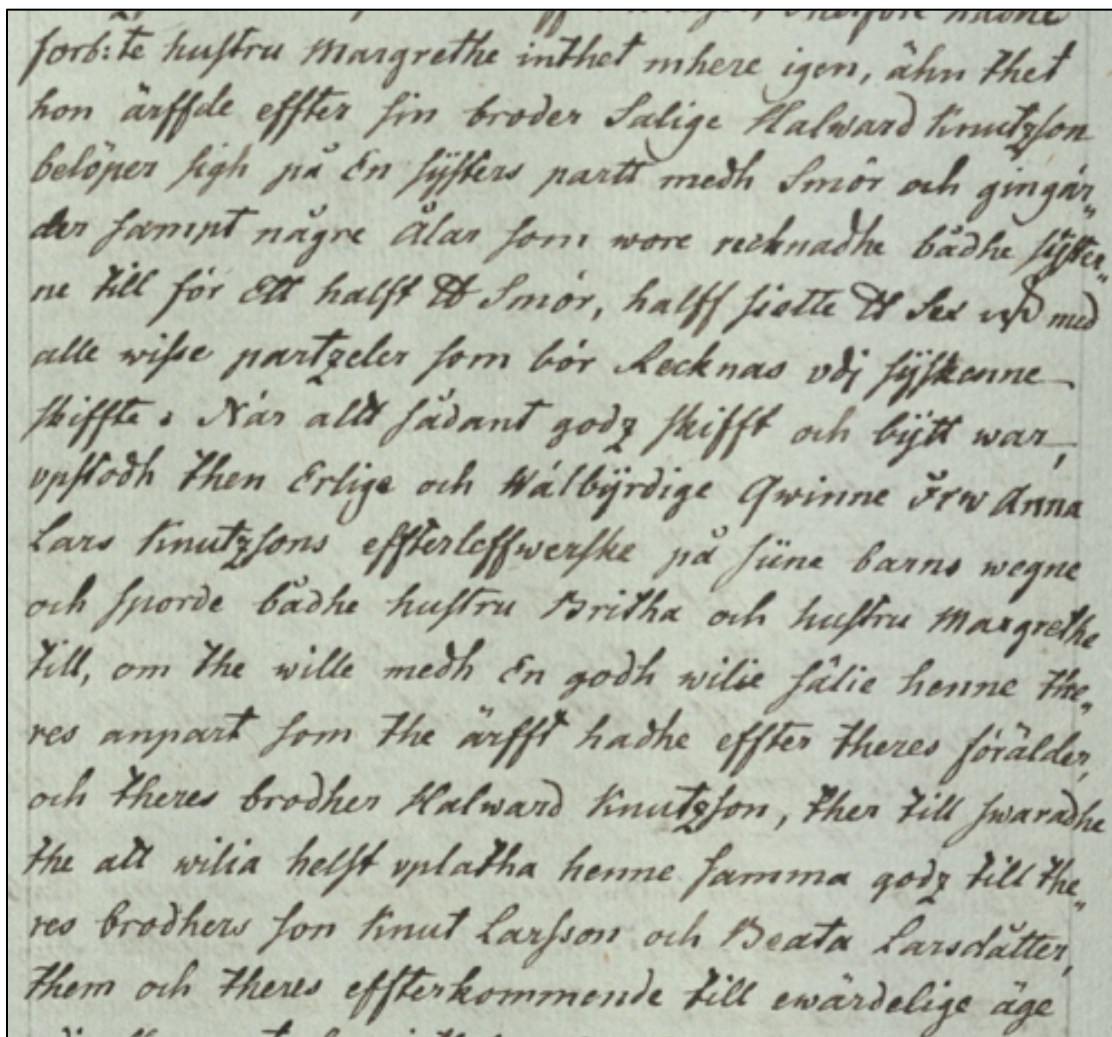 forb:te hustru Margrethe inthet mhere igen, ähn thet
hon ärffde effter sin broder Salige Halward Knutzson
belöper sigh på En sÿsters partt medh Smör och gingär„
der sampt någre Ålar som wore recknadhe bådhe sÿster„
ne till för Ett halfft ℔ Smör, halff siette ℔ Sex med
alle wisse partzeler som bör Recknas vdj sÿskenne
skiffte. När allt sådant godz skifft och bÿtt war,
vpstodh then Erlige och Wälbÿrdige Qwinne Frw Anna
Lars Knutzsons effterleffwerske på siine barns wegne
och sporde bådhe hustru Britha och hustru Margrethe
till, om the wille medh En godh wilie sälie henne the„
res anpart som the ärfft hadhe effter theres förälder,
och theres brodher Halward Knutzson, ther till swaradhe
the att wilia helst vplatha henne samma godz till the„
res brodhers son Knut Larsson och Beata Larsdåtter,
them och theres effterkommende till ewärdelige äge